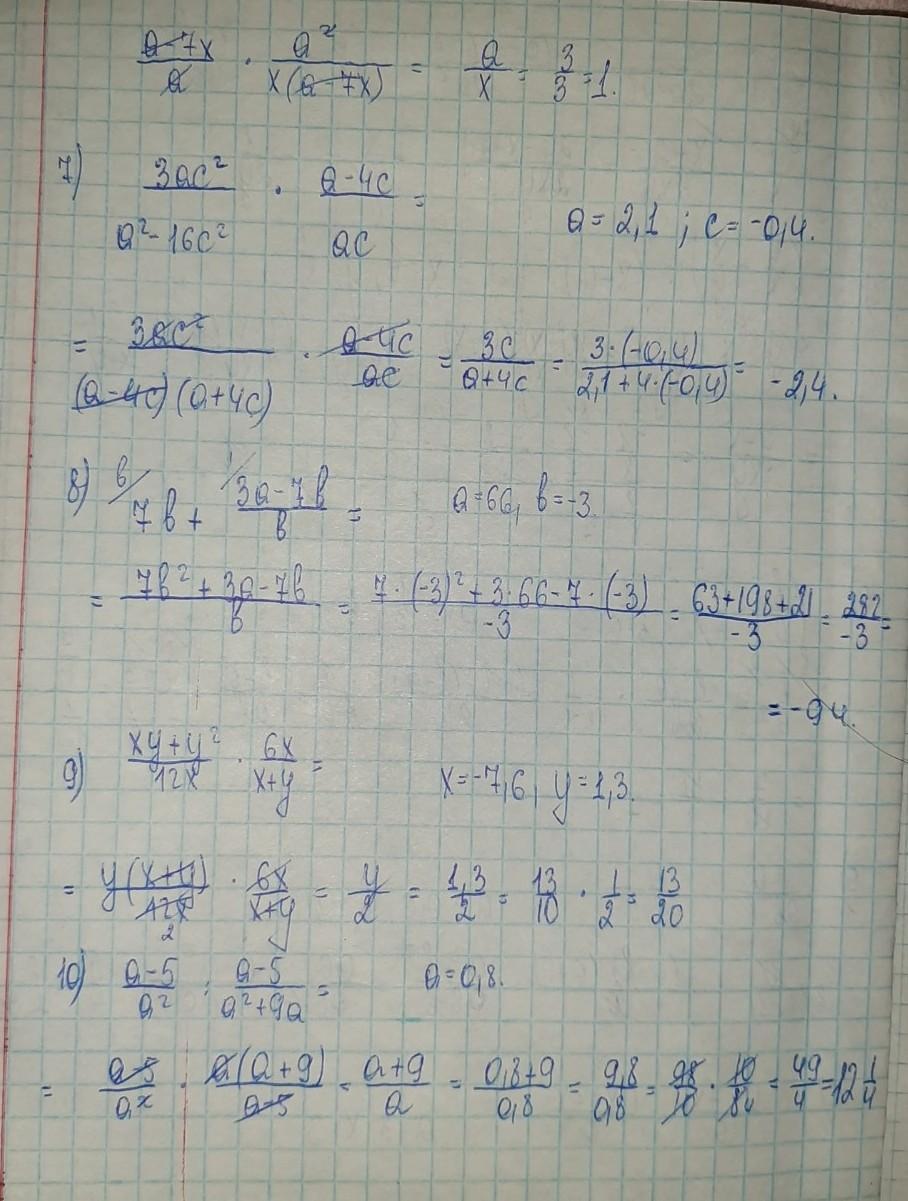 (a-7x)/a · a²/(x(a-7x)) = a/x = 3/3 = 1.
7) 3ac²/(a²-16c²) · (a-4c)/(ac) = a=2,1 ; c=-0,4.
= 3ac²/((a-4c)(a+4c)) · (a-4c)/(ac) = 3c/(a+4c) = (3·(-0,4))/(2,1+4·(-0,4)) = -2,4.
8) в/ 7в + 1/ (3a-7в)/в = a=66, в=-3.
= (7в²+3a-7в)/в = (7·(-3)²+3·66-7·(-3))/(-3) = (63+198+21)/(-3) = 282/(-3) =
= -94.
9) (xy+y²)/(12x) · 6x/(x+y) = x=-7,6, y=1,3.
= y(x+y)/(12x) 2 · 6x/(x+y) = y/2 = 1,3/2 = 13/10 · 1/2 = 13/20
10) (a-5)/a² : (a-5)/(a²+9a) = a=0,8.
= (a-5)/a² · a(a+9)/(a-5) = (a+9)/a = (0,8+9)/0,8 = 9,8/0,8 = 98/10 · 10/84 = 49/4 = 12 1/4